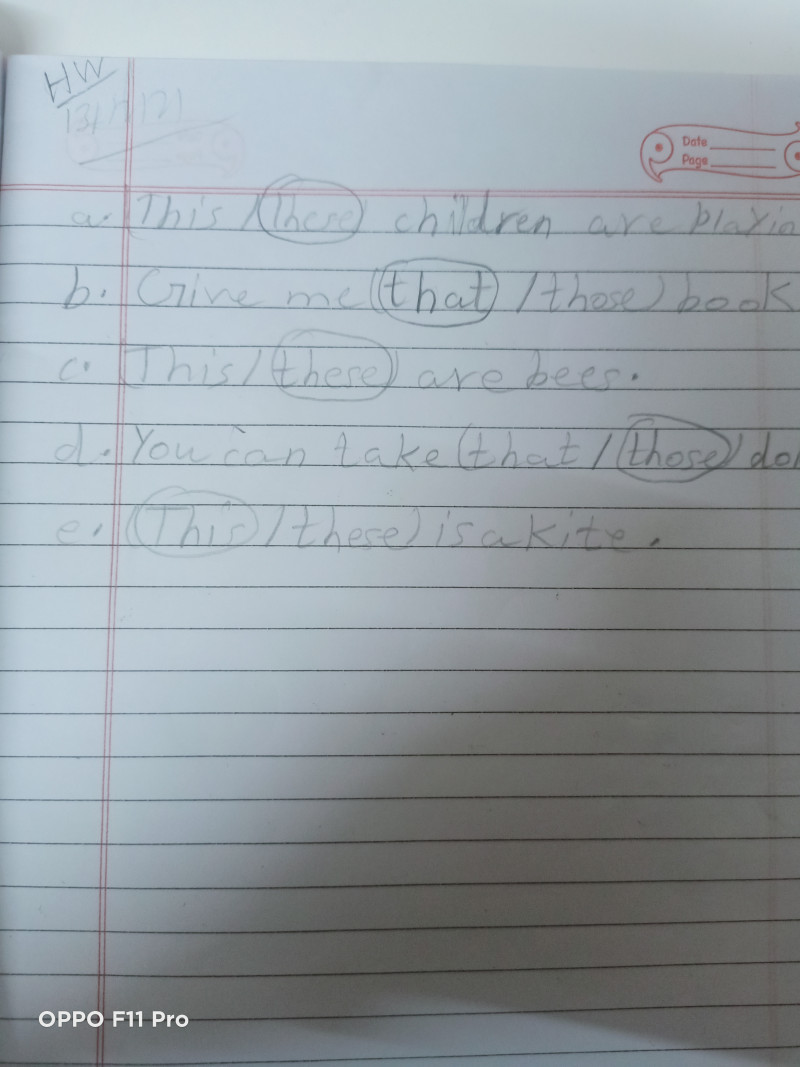 HW
Date
Page
a. This / (these) children are playin
b. Give me (that / those) book
c. This / these) are bees.
d. You can take (that / those) dol
e. (This / these) is a kite.
OPPO F11 Pro